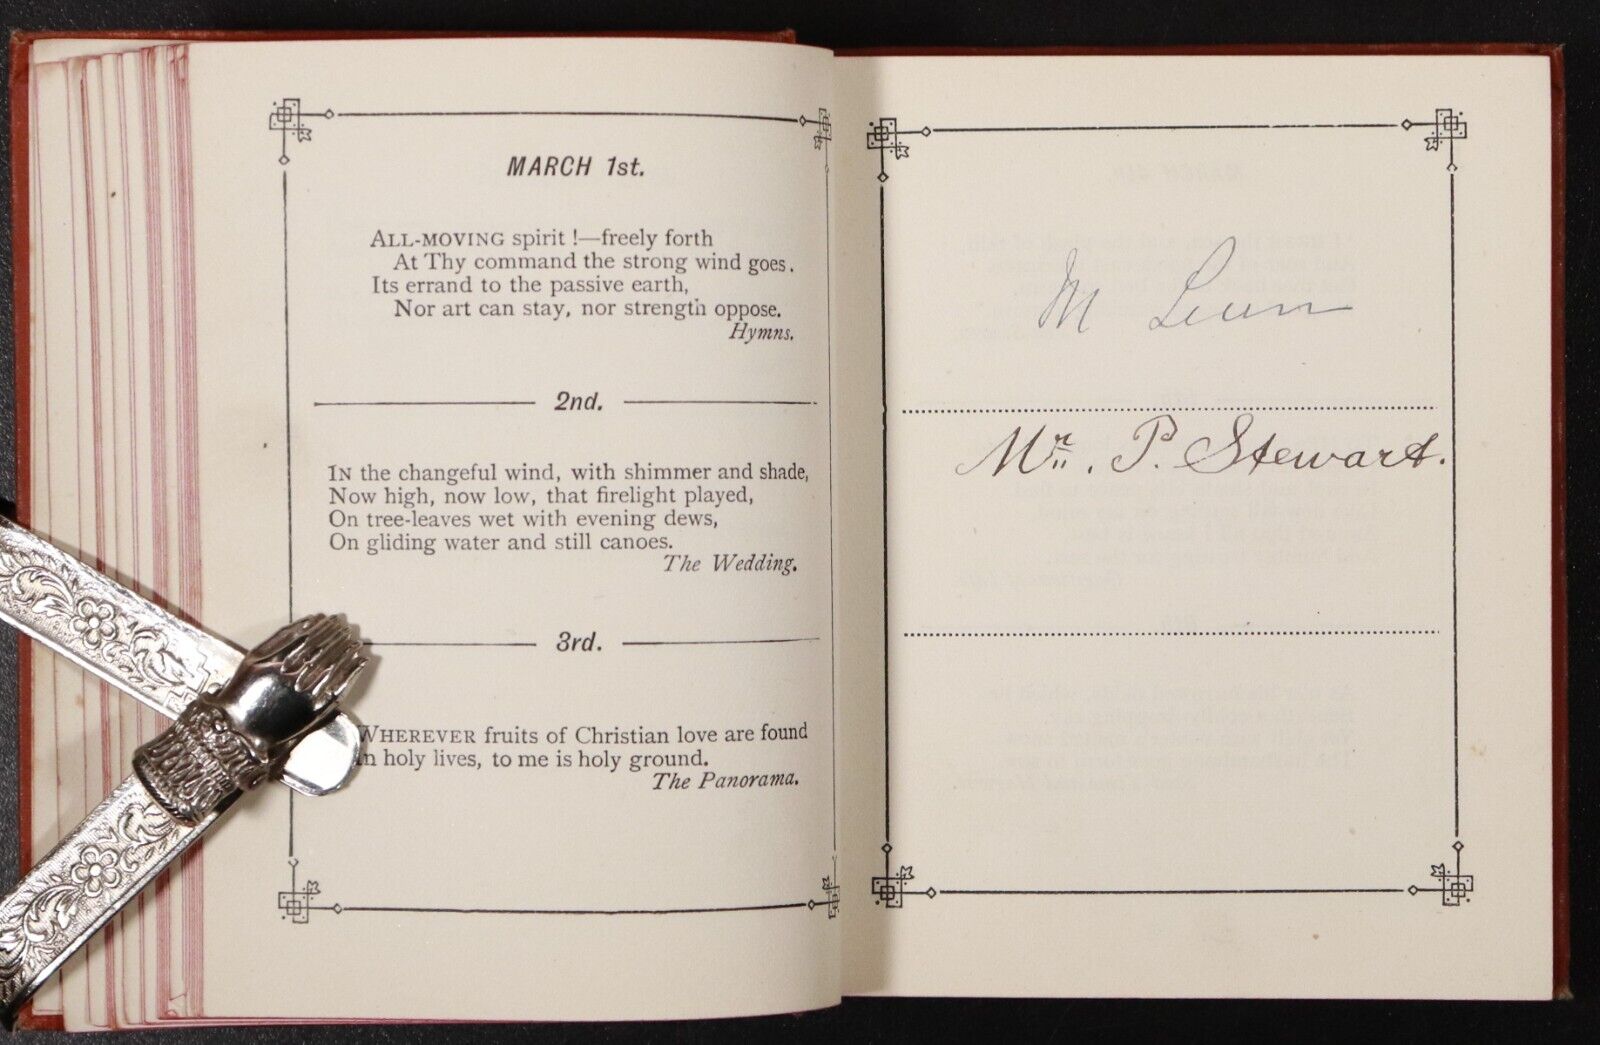 MARCH 1st.
ALL-MOVING spirit!—freely forth
At Thy command the strong wind goes.
Its errand to the passive earth,
Nor art can stay, nor strength oppose.
Hymns.
2nd.
IN the changeful wind, with shimmer and shade,
Now high, now low, that firelight played,
On tree-leaves wet with evening dews,
On gliding water and still canoes.
The Wedding.
3rd.
WHEREVER fruits of Christian love are found
In holy lives, to me is holy ground.
The Panorama.
M
Mr. P. Stewart.